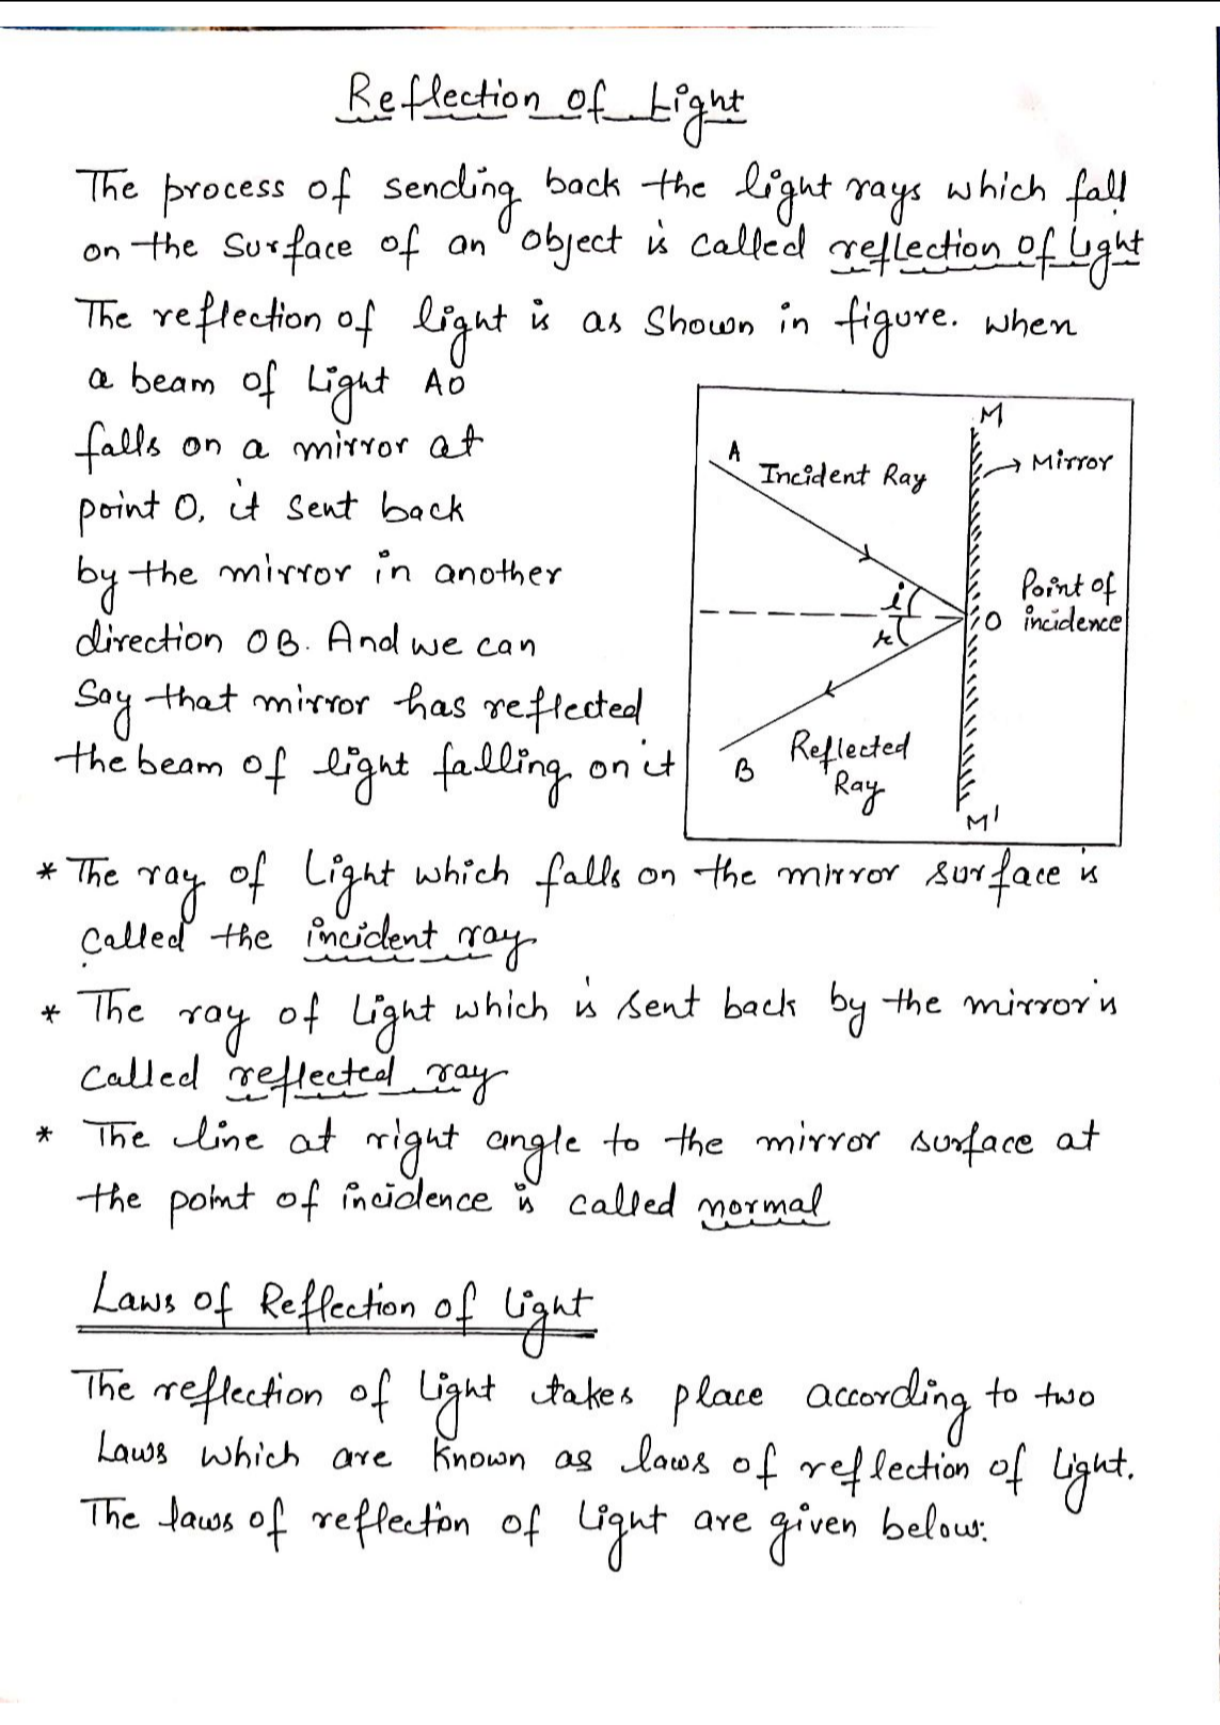 Reflection of Light
The process of sending back the light rays which fall
on the surface of an object is called reflection of light
The reflection of light is as shown in figure. when
a beam of Light AO
falls on a mirror at
point O, it sent back
by the mirror in another
direction OB. And we can
Say that mirror has reflected
the beam of light falling on it
M
A
Mirror
Incident Ray
i
Point of
O incidence
r
Reflected
B
Ray
M'
* The ray of Light which falls on the mirror surface is
called the incident ray
* The ray of Light which is sent back by the mirror is
called reflected ray
* The line at right angle to the mirror surface at
the point of incidence is called normal
Laws of Reflection of light
The reflection of Light takes place according to two
Laws which are known as laws of reflection of light.
The laws of reflection of Light are given below: